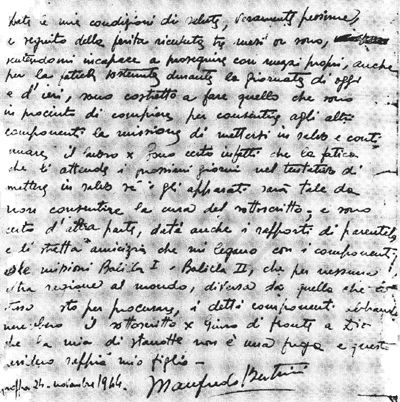 date le mie condizioni di salute, veramente pessime,
a seguito della ferita ricevuta tre mesi or sono,
sentendomi incapace a proseguire con mezzi propri, anche
per la fatica sostenuta durante la giornata di oggi
e d'ieri, sono costretto a fare quello che sono
in procinto di compiere per consentire agli altri
componenti la missione di mettersi in salvo e conti
nuare il lavoro x Sono certo infatti che la fatica
che li attende i prossimi giorni nel tentativo di
mettere in salvo se e gli apparati sarà tale da
non consentire la cura del sottoscritto, e sono
certo d'altra parte, dati anche i rapporti di parentela
e di stretta amicizia che mi legano con i componenti
delle missioni Balilla I - Balilla II, che per nessuna
altra ragione al mondo, diversa da quella che
sto per procurare, i detti componenti abbando
nerebbero il sottoscritto x Giuro di fronte a Dio
che la mia di stanotte non è una fuga e questo
saprà mio figlio -
24 novembre 1944. Manfredo Bertini